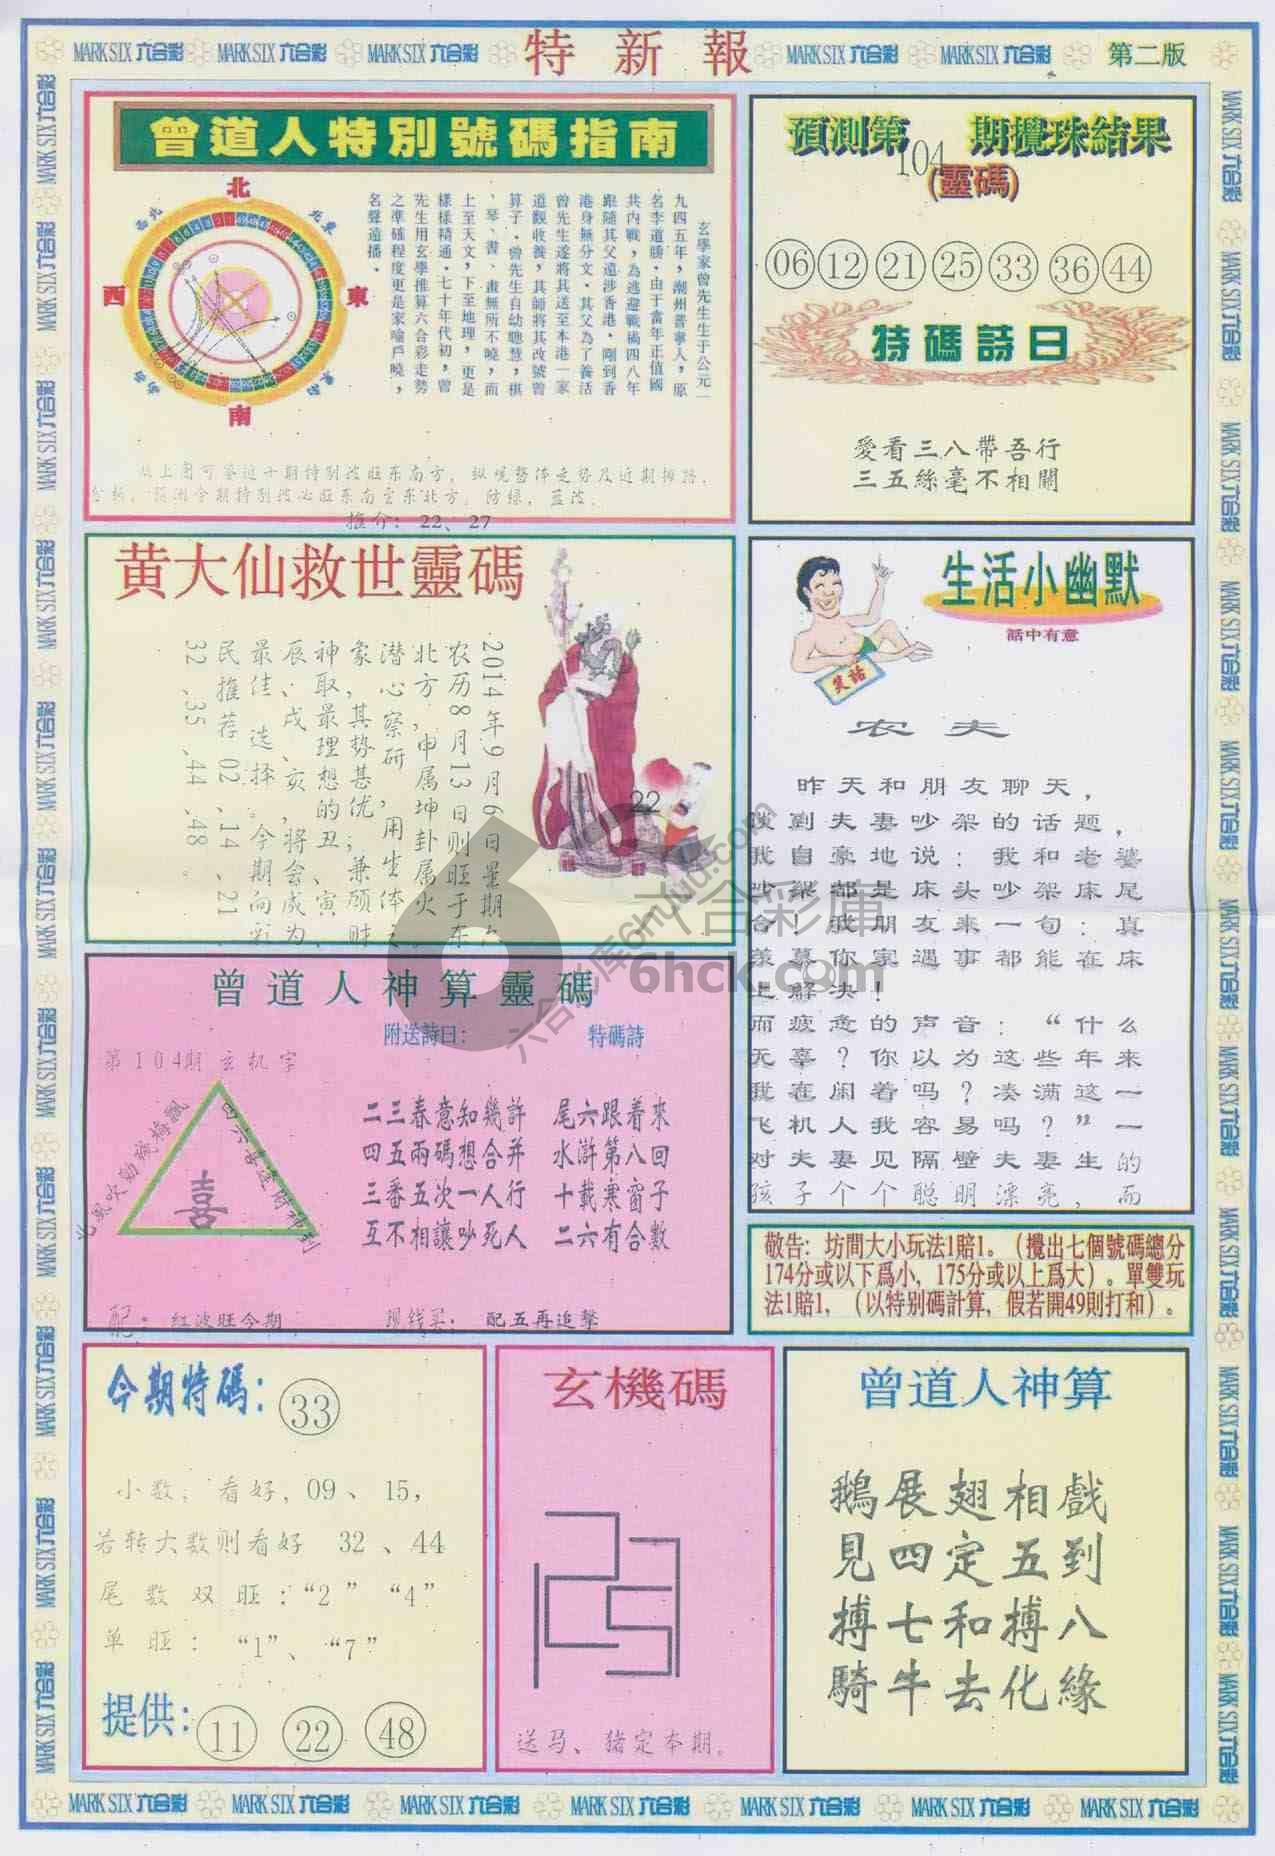 MARK SIX 六合彩 MARK SIX 六合彩 MARK SIX 六合彩 特新報 MARK SIX 六合彩 MARK SIX 六合彩 第二版
曾道人特別號碼指南
北
東
南
西
東北
西北
玄學家曾先生生于公元一
九四五年，潮州普寧人，原
名李道勝，由于當年正值國
共內戰，為逃避戰禍四八年
跟隨其父遠涉香港，剛到香
港身無分文，其父為了養活
曾先生遂將其送至本港一家
道觀收養，其師將其改號曾
算子。曾先生自幼聰慧，棋
、琴、書、畫無所不曉，而
上至天文，下至地理，更是
樣樣精通。七十年代初，曾
先生用玄學推算六合彩走勢
之準確程度更是家喻戶曉，
名聲遠播。
推介：22、27
預測第104期攪珠結果
(靈碼)
06 12 21 25 33 36 44
特碼詩曰
愛看三八帶吾行
三五絲毫不相關
黄大仙救世靈碼
2014年9月6日星期六
农历8月13日则旺于东
北方，申属坤卦属火
潜心察研，用生体
家，其势甚优；兼顾时
神取最理想的丑、寅、
辰、戌、亥，将会成为
最佳选择。今期向彩
民推荐02、14、21、
32、35、44、48。
22
生活小幽默
話中有意
笑話
农夫
昨天和朋友聊天，
谈到夫妻吵架的话题，
我自豪地说：我和老婆
吵架都是床头吵架床尾
合！我朋友来一句：真
羡慕你家遇事都能在床
上解决！
而疲惫的声音：“什么
无辜？你以为这些年来
我在闹着吗？凑满这一
飞机人我容易吗？”一
对夫妻见隔壁夫妻生的
孩子个个聪明漂亮，而
曾道人神算靈碼
附送詩曰： 特碼詩
第104期玄机字
喜
二三春意知幾許 尾六跟着來
四五兩碼想合并 水滸第八回
三番五次一人行 十載寒窗子
互不相讓吵死人 二六有合數
配：红波旺今期； 现钱买： 配五再追擊
敬告：坊間大小玩法1賠1。（攪出七個號碼總分
174分或以下爲小，175分或以上爲大）。單雙玩
法1賠1，（以特别碼計算，假若開49則打和）。
今期特碼：33
小数：看好，09、15，
若转大数则看好 32、44
尾数双旺：“2”“4”
单旺：“1”、“7”
提供：11 22 48
玄機碼
送马、猪定本期。
曾道人神算
鵝展翅相戲
見四定五到
搏七和搏八
騎牛去化緣
六合彩庫
6hck.com
MARK SIX 六合彩 MARK SIX 六合彩 MARK SIX 六合彩 MARK SIX 六合彩 MARK SIX 六合彩 MARK SIX 六合彩 MARK SIX 六合彩